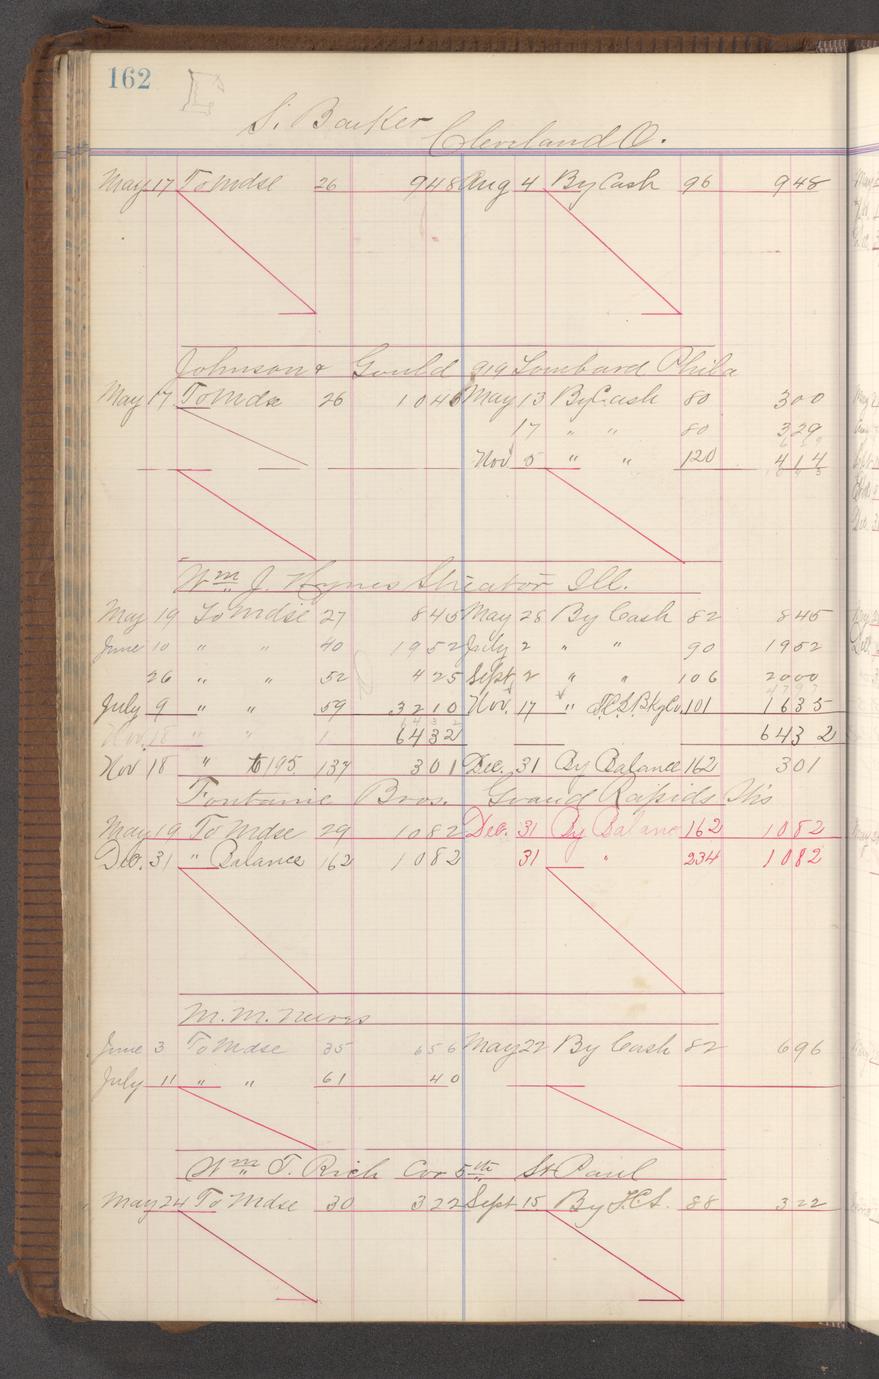 162
S. Barker Cleveland O.
May 17 To Mdse 26 948 Aug 4 By Cash 96 948
Johnson & Gould 919 Lombard Phila
May 17 To Mdse 26 1046 May 13 By Cash 80 300
17 " " 80 329
Nov 5 " " 120 414
Wm J. Hynes Streator Ill.
May 19 To Mdse 27 845 May 28 By Cash 82 845
June 10 " " 40 1952 July 2 " " 90 1952
26 " " 52 425 Sept 2 " " 106 2000
4797
July 9 " " 59 3210 Nov. 17 " 101 1635
6432
Nov 18 " " 1 6432 6432
Nov 18 " to 195 137 301 Dec. 31 By Balance 162 301
Fontanie Bros. Grand Rapids Wis
May 19 To Mdse 29 1082 Dec. 31 By Balanc 162 1082
Dec. 31 " Balance 162 1082 31 " 234 1082
M. M.
June 3 To Mdse 35 656 May 22 By Cash 82 696
July 11 " " 61 40
Wm T. Rich Cor 5th St Paul
May 24 To Mdse 30 322 Sept 15 By 88 322